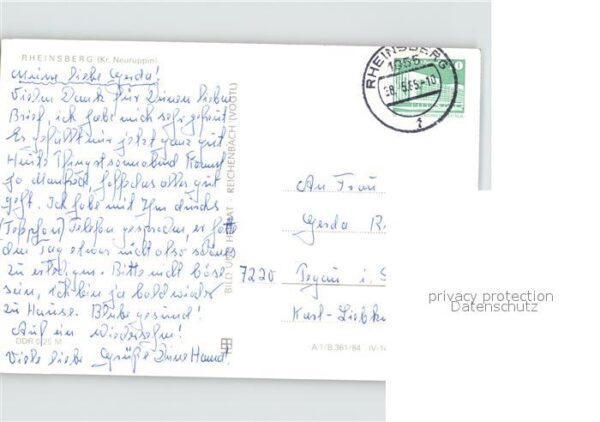 RHEINSBERG (Kr. Neuruppin)
Meine liebe Gerda!
Vielen Dank für Deinen lieben
Brief, ich habe mich sehr gefreut
Es gefällt mir jetzt ganz gut
Heute Pfingstsonnabend kommt
ja Manfred, hoffe das alles gut
geht. Ich habe mit Ihm durchs
Telefon gesprochen, er
den Tag etwas nicht also
zu erledigen. Bitte nicht böse
sein, ich bin ja bald wieder
zu Hause. Bleibe gesund!
Auf ein Wiedersehn!
Viele liebe Grüße Deine
DDR 0,25 M
BILD UND HEIMAT · REICHENBACH (VOGTL)
RHEINSBERG
1955
An Frau
Gerda
7220 Pegau i.
Karl-Liebk
A 1/B 361/84 IV-14
privacy protection
Datenschutz